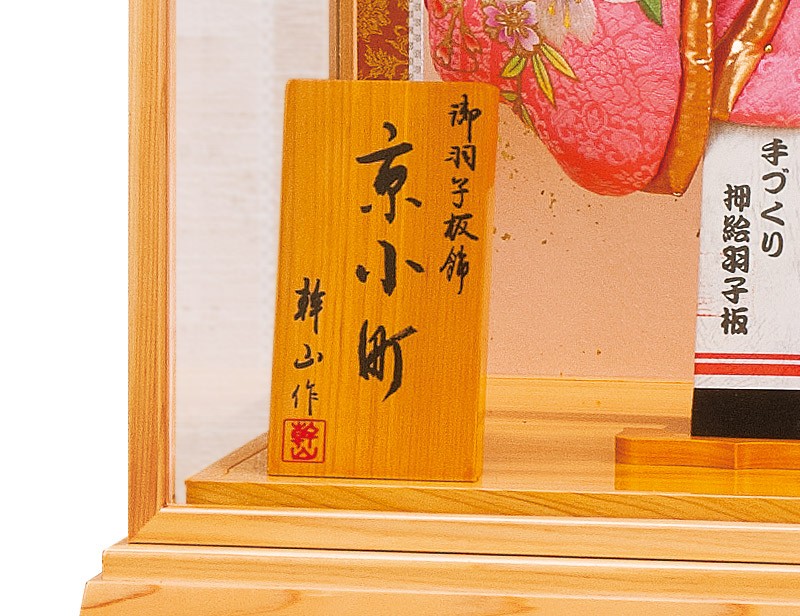 御羽子板飾
京小町
幹山作
幹山
手づくり
押絵羽子板